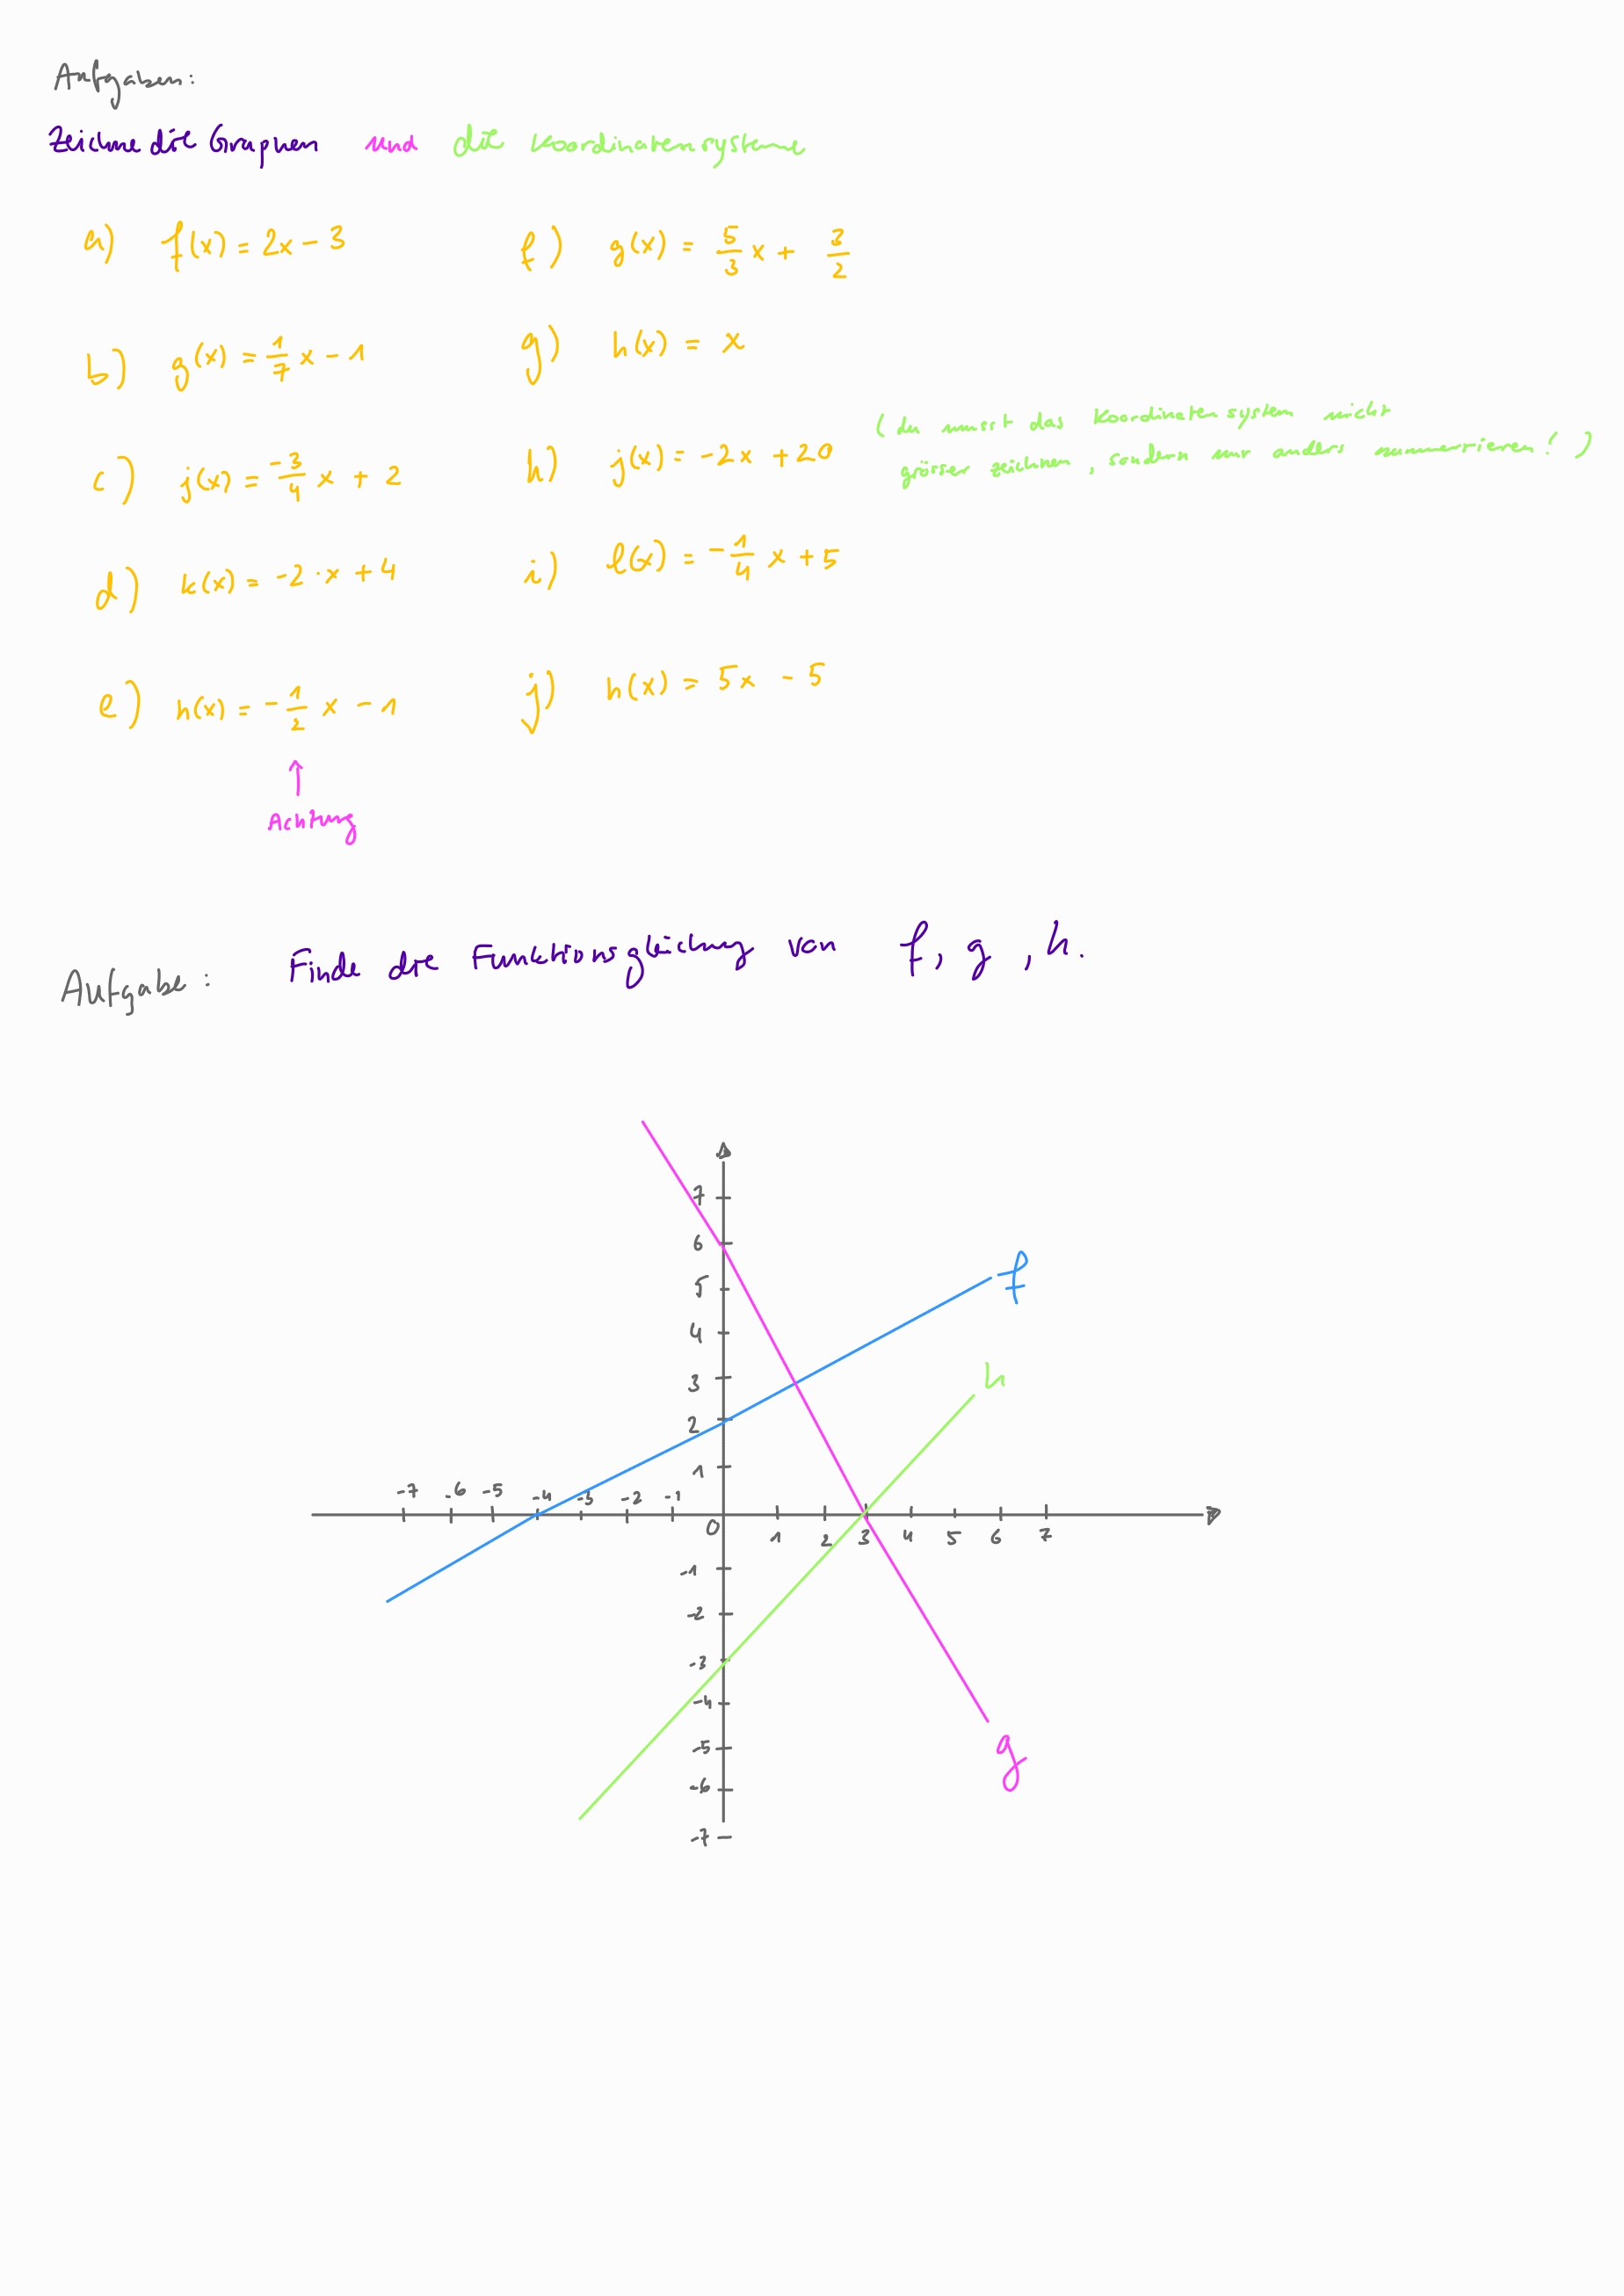 Aufgaben:
Zeichne die Graphen und die Koordinatensysteme
a) f(x) = 2x - 3
f) g(x) = 5/3 x + 3/2
b) g(x) = 1/7 x - 1
g) h(x) = x
c) j(x) = -3/4 x + 2
h) j(x) = -2x + 20
(du musst das Koordinatensystem nicht
grösser zeichnen, sondern nur anders nummerieren!)
d) k(x) = -2·x + 4
i) l(x) = -1/4 x + 5
e) h(x) = -1/2 x - 1
j) h(x) = 5x - 5
↑
Achtung
Aufgabe: Finde die Funktionsgleichung von f, g, h.
7
6
5
4
3
2
1
f
h
-7 -6 -5 -4 -3 -2 -1
0 1 2 3 4 5 6 7
-1
-2
-3
-4
-5
-6
-7
g